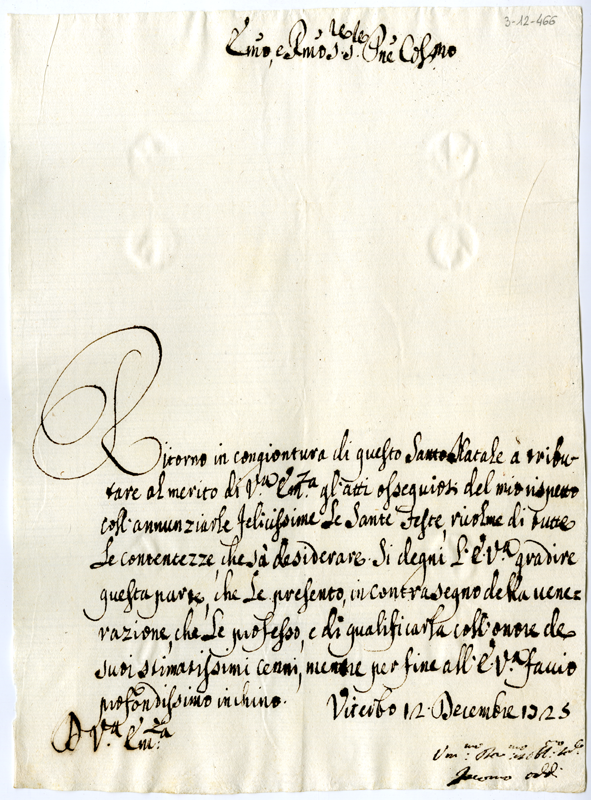 3-12-466
Emo, e Rmo Sre Sre Pne Colmo
Ritorno in congiontura di questo Santo Natale à tribu-
tare al merito di V.ra Em.za gl'atti ossequiosi del mio rispetto
coll'annunziarle felicissime le Sante feste, ricolme di tutte
le contentezze, che sà desiderare. Si degni l'E V.ra gradire
questa parte, che Le presento, in contrasegno della vene-
razione, che Le professo, e di qualificarla coll'onore de
suoi stimatissimi cenni, mentre per fine all'E V.ra faccio
profondissimo inchino. Viterbo 12 Decembre 1725
D V.ra Em.za
Um.mo
Giacomo Oddi